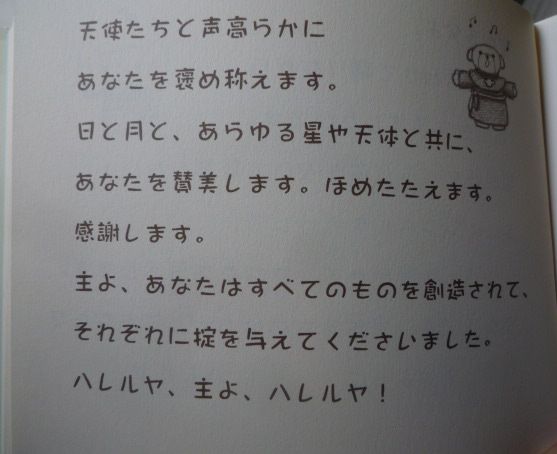 天使たちと声高らかに
あなたを褒め称えます。
日と月と、あらゆる星や天体と共に、
あなたを賛美します。ほめたたえます。
感謝します。
主よ、あなたはすべてのものを創造されて、
それぞれに掟を与えてくださいました。
ハレルヤ、主よ、ハレルヤ！